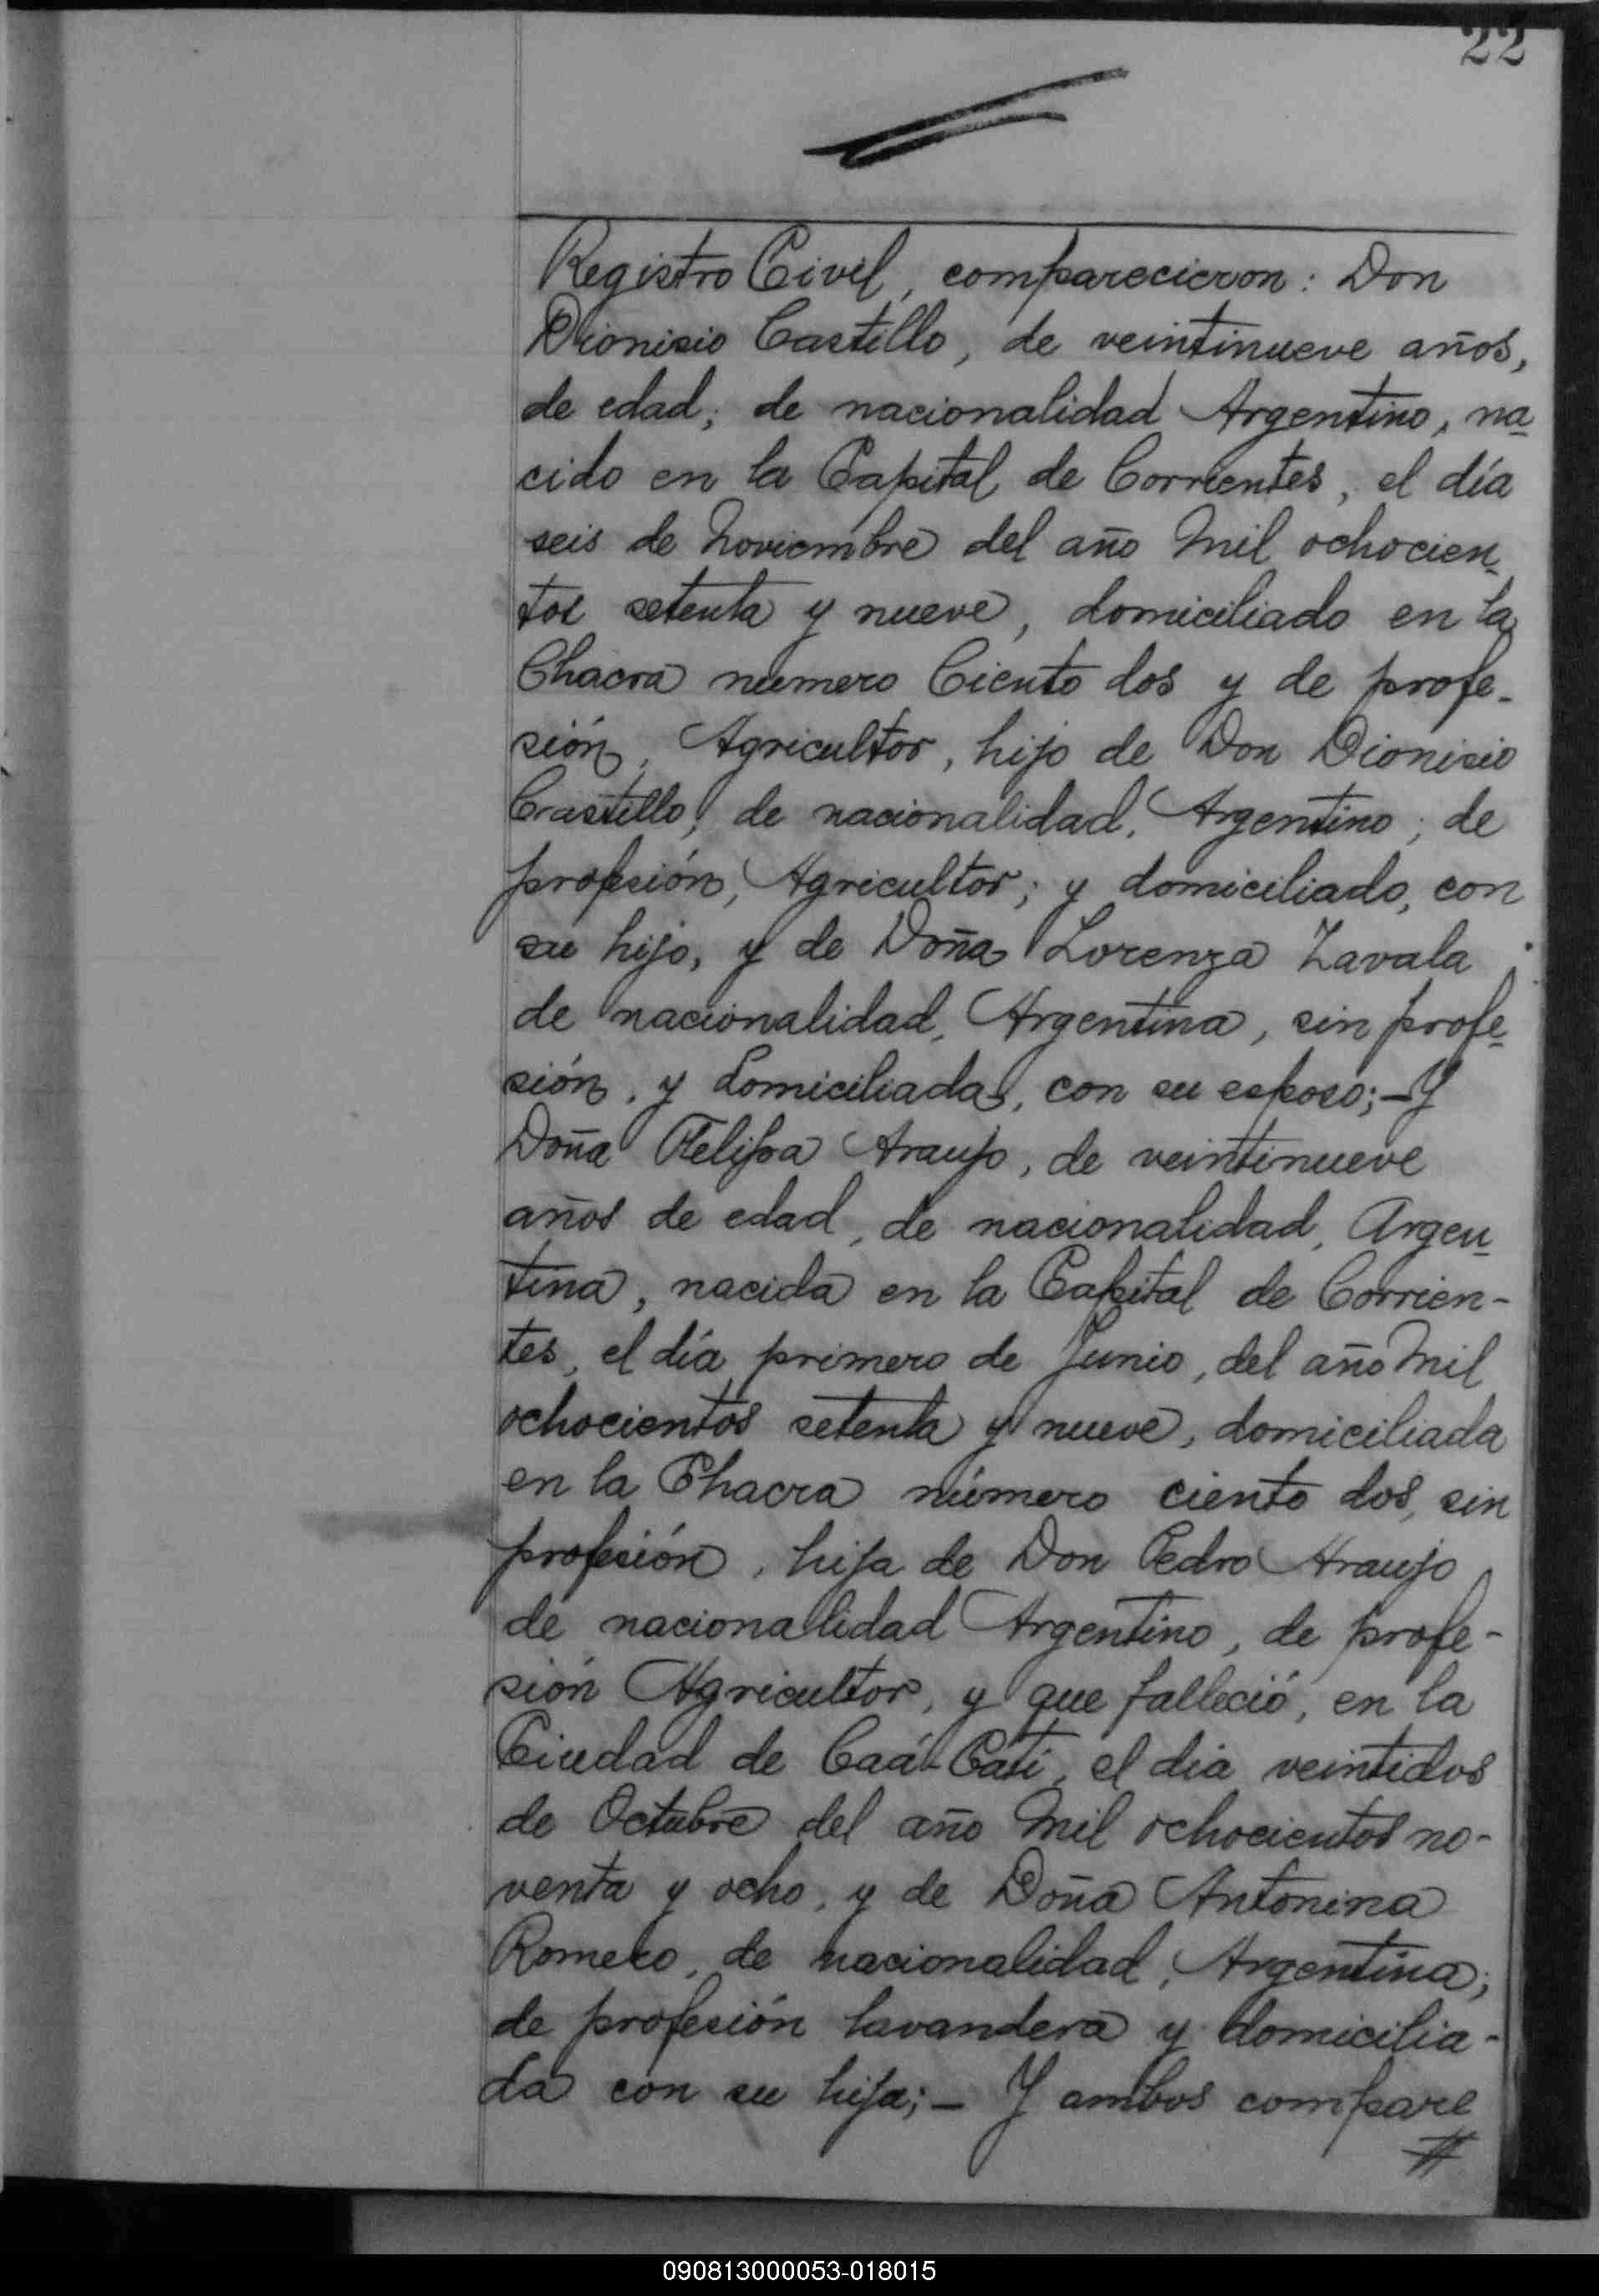 22
Registro Civil, comparecieron: Don
Dionisio Castillo, de veintinueve años,
de edad; de nacionalidad Argentino, na
cido en la Capital de Corrientes, el día
seis de Noviembre del año Mil ochocien
tos setenta y nueve, domiciliado en la
Chacra número Ciento dos y de profe-
sión, Agricultor, hijo de Don Dionisio
Castillo, de nacionalidad, Argentino; de
profesión, Agricultor; y domiciliado, con
su hijo, y de Doña Lorenza Zavala
de nacionalidad, Argentina, sin profe
sión, y domiciliada, con su esposo;- Y
Doña Felipa Araujo, de veintinueve
años de edad, de nacionalidad, Argen
tina, nacida en la Capital de Corrien-
tes, el día primero de Junio, del año Mil
ochocientos setenta y nueve, domiciliada
en la Chacra número ciento dos, sin
profesión, hija de Don Pedro Araujo
de nacionalidad Argentino, de profe-
sión Agricultor, y que falleció, en la
Ciudad de Caá-Catí, el dia veintidos
de Octubre del año Mil ochocientos no-
venta y ocho, y de Doña Antonina
Romero, de nacionalidad, Argentina;
de profesión lavandera y domicilia-
da con su hija;- Y ambos compare
090813000053-018015